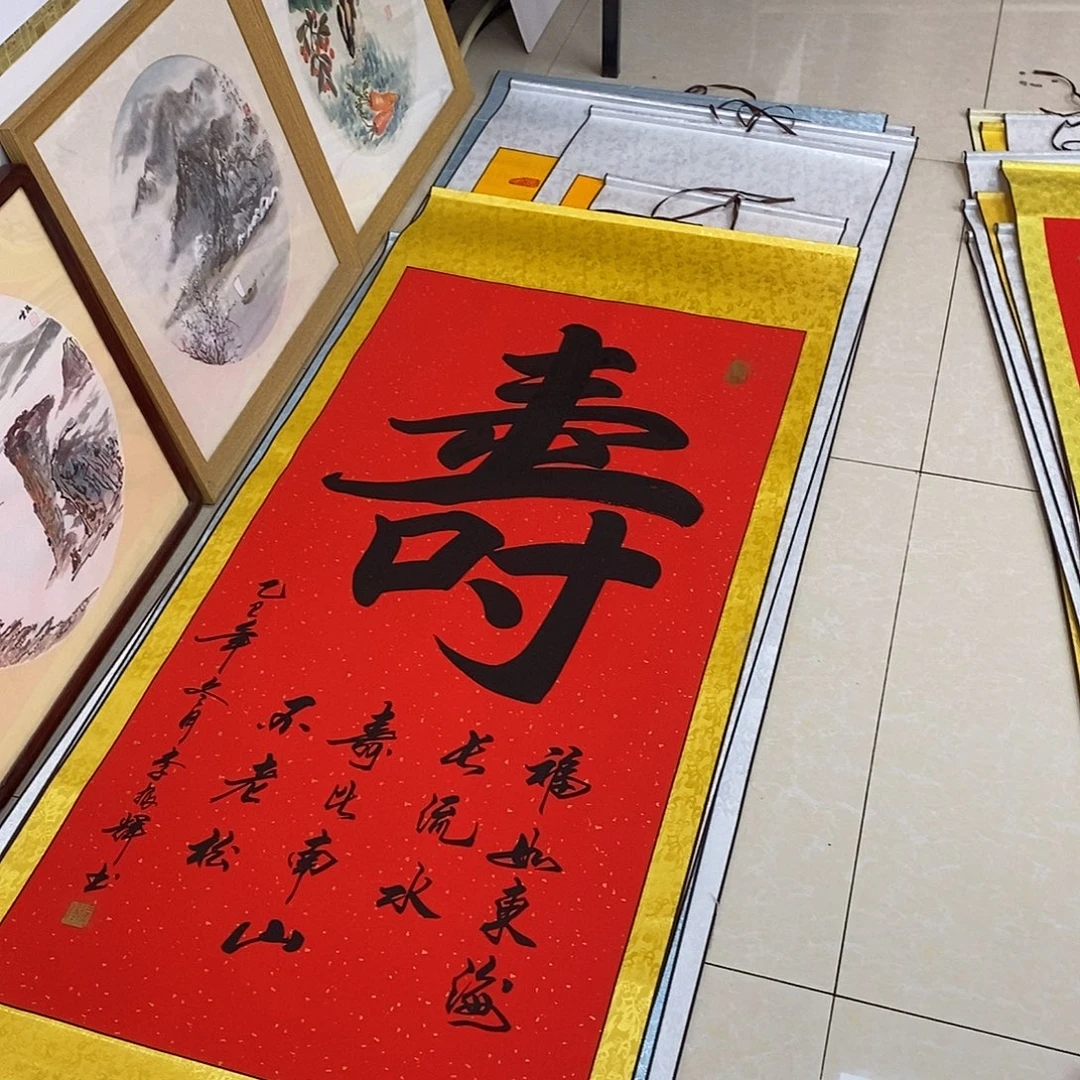 壽
福如東海
长流水
壽比南山
不老松
乙丑年冬月李振輝书